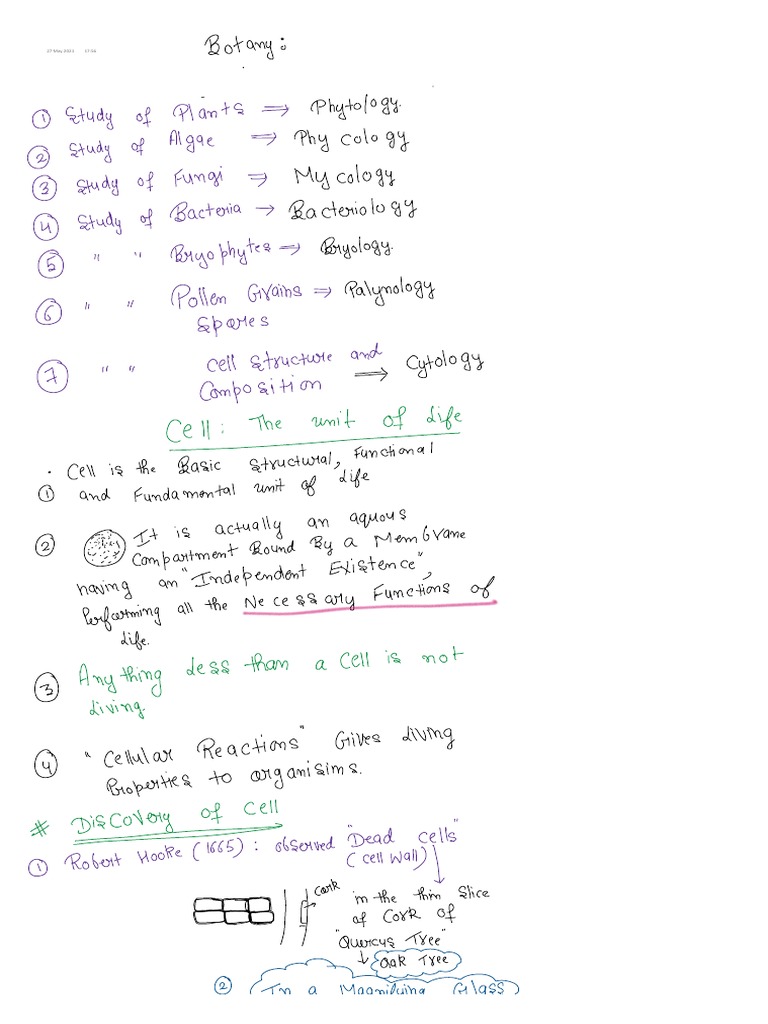 27 May 2021 17:56
Botany:
① Study of Plants ⇒ Phytology.
② Study of Algae ⇒ Phycology
③ Study of Fungi ⇒ Mycology
④ Study of Bacteria → Bacteriology
⑤ " " Bryophytes ⇒ Bryology.
⑥ " " Pollen Grains ⇒ Palynology
Spores
⑦ " " Cell Structure and
Composition ⇒ Cytology
Cell: The unit of Life
· Cell is the Basic Structural, Functional
① and Fundamental unit of Life
② It is actually an aquous
Compartment Bound By a Membrane
having an "Independent Existence",
Performing all the Necessary Functions of
Life.
③ Anything Less than a Cell is not
Living.
④ "Cellular Reactions" Gives Living
Properties to organisims.
# Discovery of Cell
① Robert Hooke (1665): observed "Dead Cells"
(Cell Wall)
Cork
in the thin Slice
of Cork of
"Quercus Tree"
↓ Oak Tree
② In a Magnifying Glass